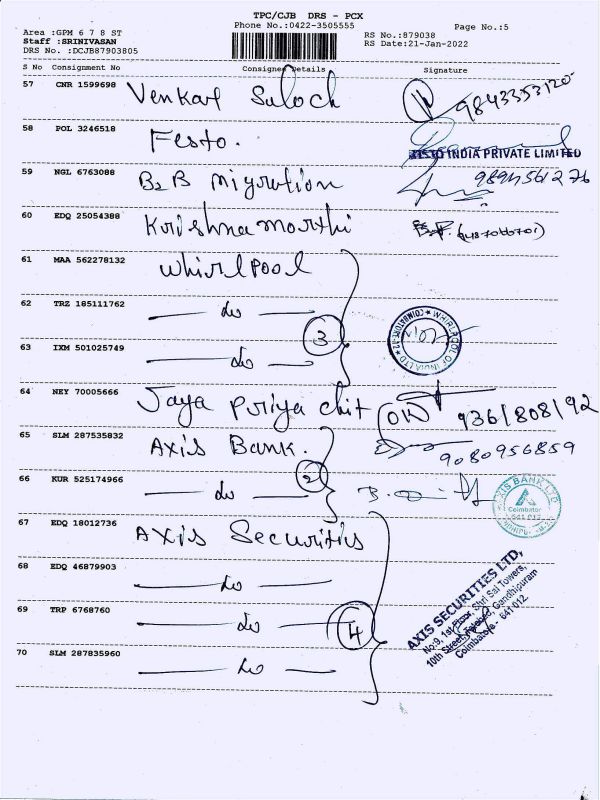 TPC/CJB DRS - PCX
Phone No.:0422-3505555
Page No.:5
Area :GPM 6 7 8 ST
Staff :SRINIVASAN
DRS No. :DCJB87903805
RS No.:879038
RS Date:21-Jan-2022
S No Consignment No Consignee Details Signature
57 CNR 1599698 Venkat Suloch 9843353120
58 POL 3246518 Festo.
INDIA PRIVATE LIMITED
59 NGL 6763088 B2B Migration 9894561276
60 EDQ 25054388 Krishnamorthi
61 MAA 562278132 Whirlpool
62 TRZ 185111762 — do —
3
WHIRLPOOL OF INDIA LTD COIMBATORE-12
63 IXM 501025749 — do —
64 NEY 70005666 Jaya Priya chit 9361808192
65 SLM 287535832 Axis Bank. 9080956859
2
66 KUR 525174966 — do —
AXIS BANK LTD
Coimbatore
641 012
67 EDQ 18012736 Axis Securities
68 EDQ 46879903 — do —
69 TRP 6768760 — do — 4
70 SLM 287835960 — do —
AXIS SECURITIES LTD,
No:9, 1st Floor, Shri Sai Towers,
10th Street, Gandhipuram
Coimbatore - 641 012